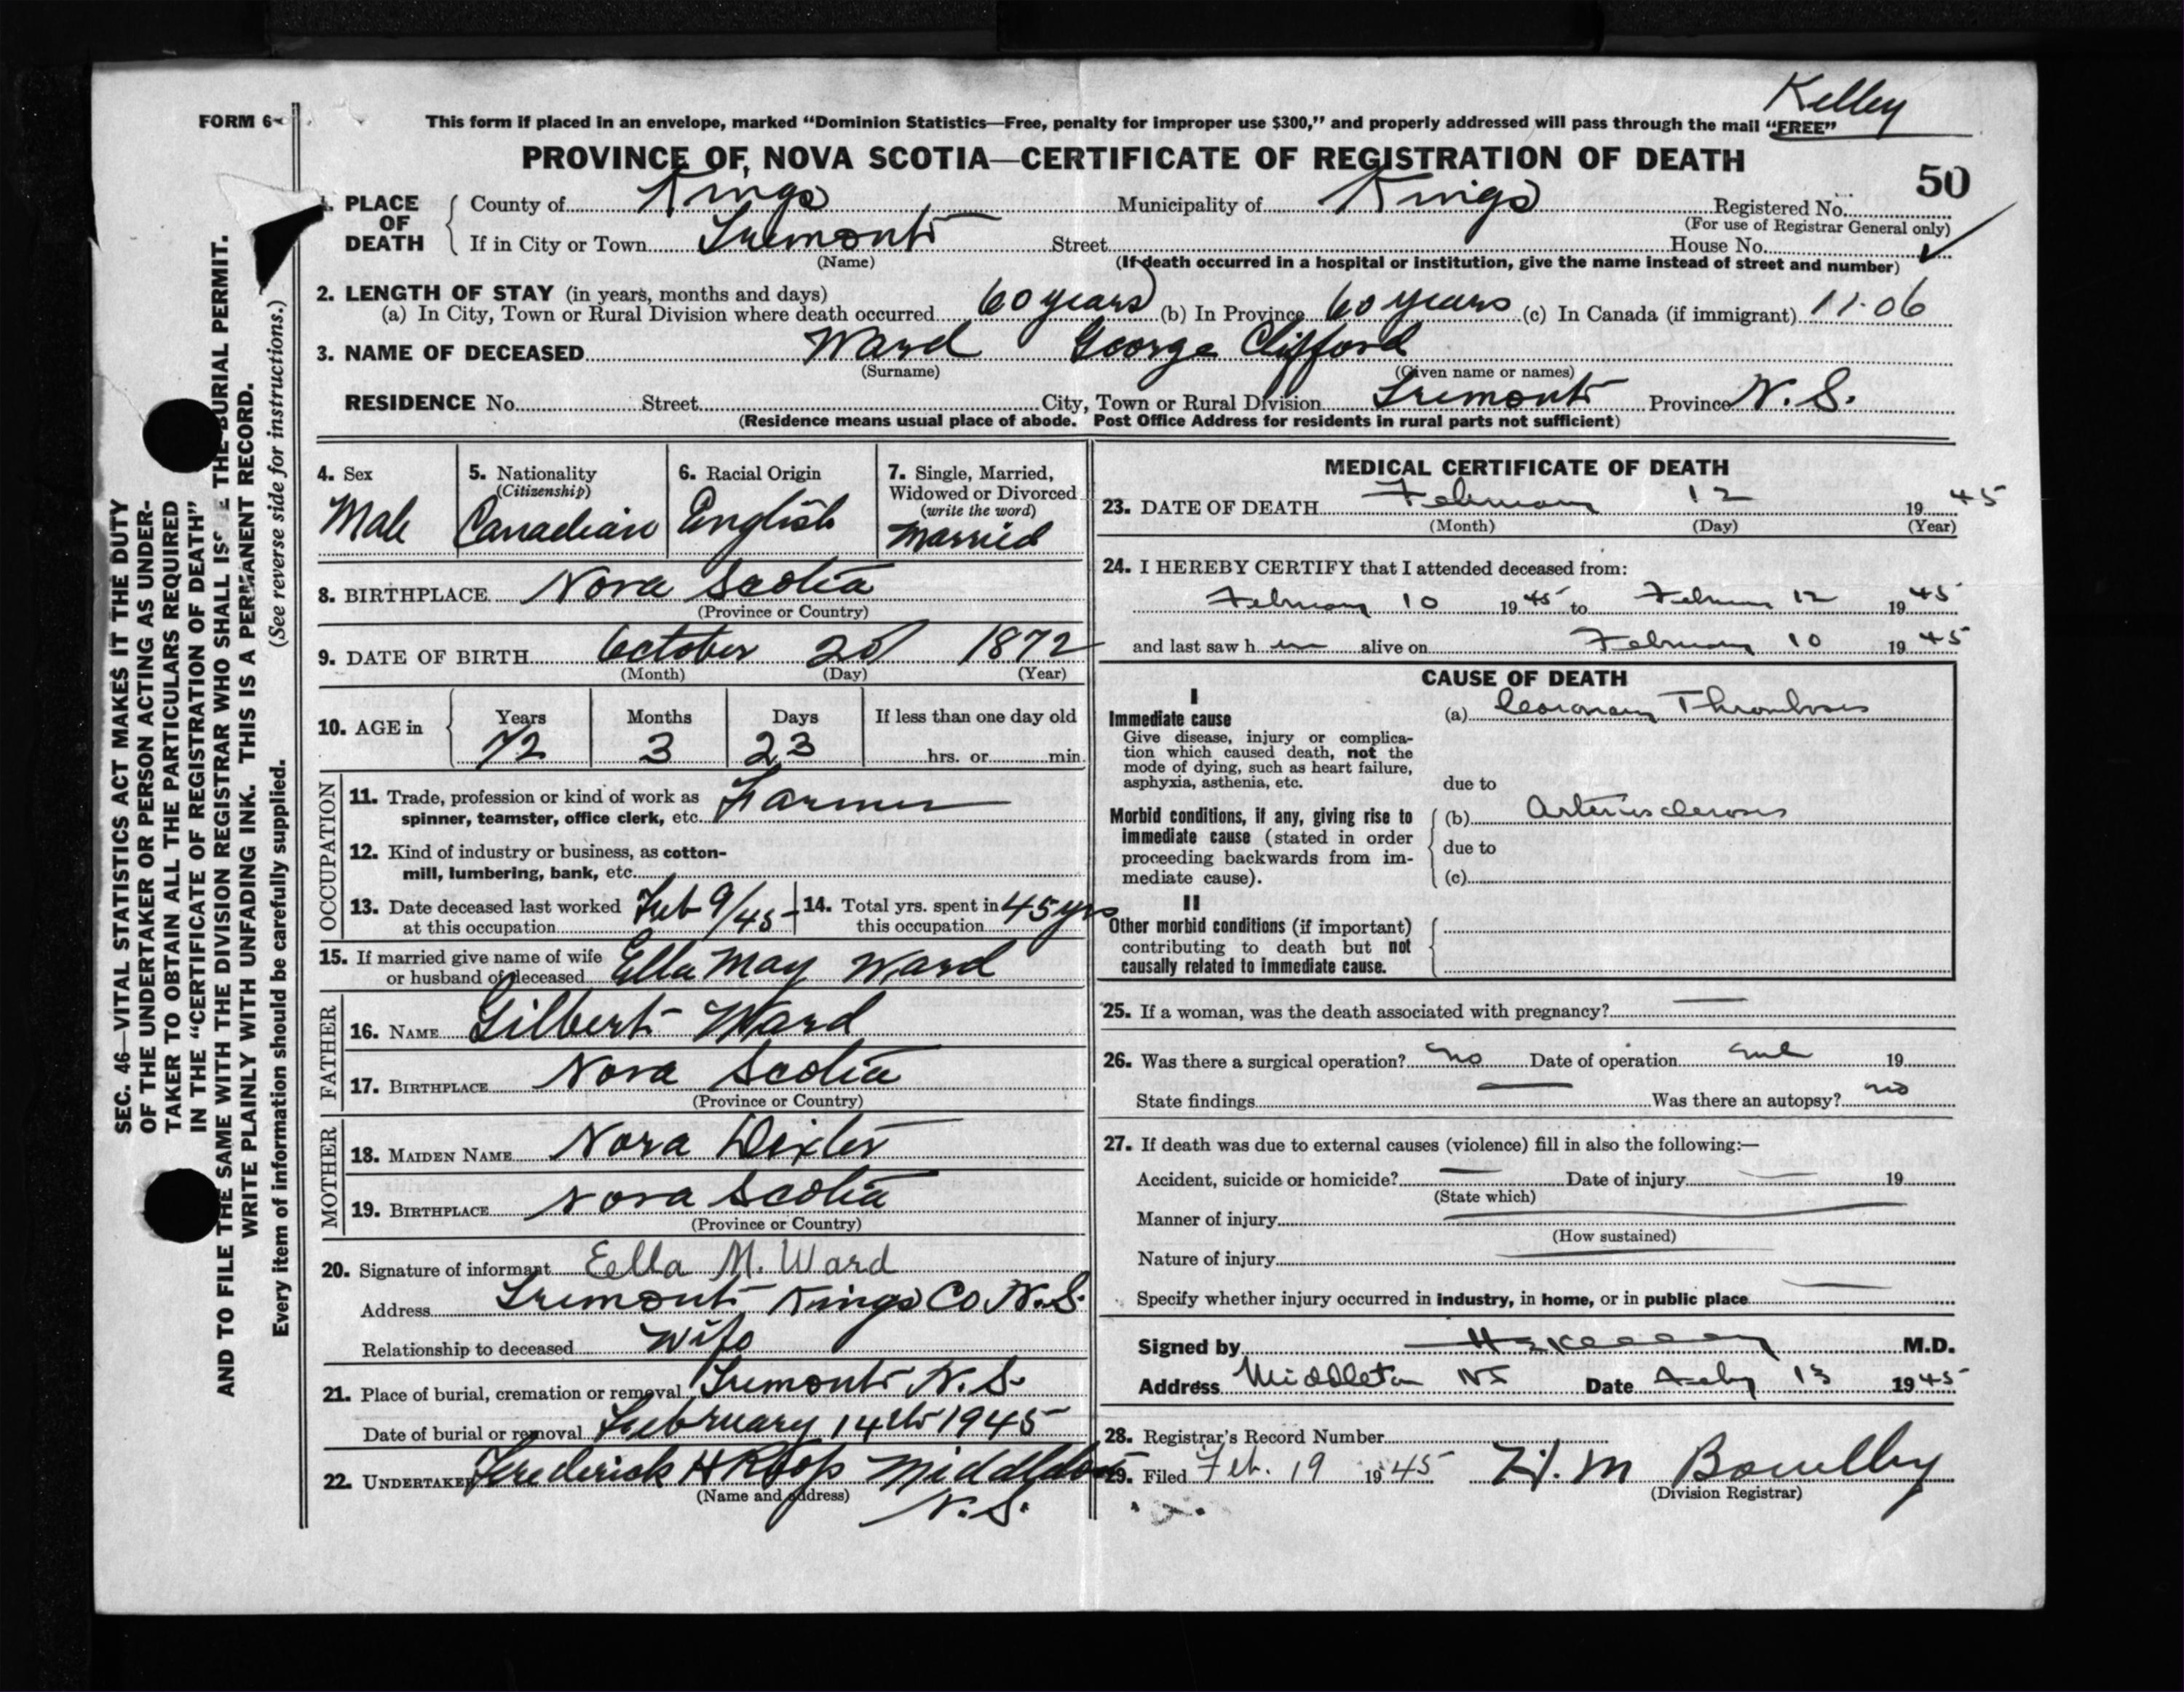 Kelley
FORM 6
This form if placed in an envelope, marked "Dominion Statistics—Free, penalty for improper use $300," and properly addressed will pass through the mail "FREE"
PROVINCE OF NOVA SCOTIA—CERTIFICATE OF REGISTRATION OF DEATH
50
1. PLACE OF DEATH { County of Kings Municipality of Kings Registered No.
(For use of Registrar General only)
If in City or Town Tremont Street House No.
(Name) (If death occurred in a hospital or institution, give the name instead of street and number)
2. LENGTH OF STAY (in years, months and days)
(a) In City, Town or Rural Division where death occurred 60 years (b) In Province 60 years (c) In Canada (if immigrant) 11-06
3. NAME OF DECEASED Ward George Clifford
(Surname) (Given name or names)
RESIDENCE No. Street City, Town or Rural Division Tremont Province N.S.
(Residence means usual place of abode. Post Office Address for residents in rural parts not sufficient)
4. Sex Male
5. Nationality (Citizenship) Canadian
6. Racial Origin English
7. Single, Married, Widowed or Divorced (write the word) Married
8. BIRTHPLACE Nova Scotia
(Province or Country)
9. DATE OF BIRTH October 20 1872
(Month) (Day) (Year)
10. AGE in { Years 72 Months 3 Days 23 If less than one day old hrs. or min.
OCCUPATION
11. Trade, profession or kind of work as Farmer
spinner, teamster, office clerk, etc.
12. Kind of industry or business, as cotton-
mill, lumbering, bank, etc.
13. Date deceased last worked at this occupation Feb 9/45
14. Total yrs. spent in this occupation 45 yrs
15. If married give name of wife
or husband of deceased Ella May Ward
FATHER
16. NAME Gilbert Ward
17. BIRTHPLACE Nova Scotia
(Province or Country)
MOTHER
18. MAIDEN NAME Nora Dexter
19. BIRTHPLACE Nova Scotia
(Province or Country)
20. Signature of informant Eella M. Ward
Address Tremont Kings Co N.S.
Relationship to deceased Wife
21. Place of burial, cremation or removal Tremont N.S.
Date of burial or removal February 14th 1945
22. UNDERTAKER Frederick H Roop Middleton
(Name and address) N.S.
MEDICAL CERTIFICATE OF DEATH
23. DATE OF DEATH February 12 1945
(Month) (Day) (Year)
24. I HEREBY CERTIFY that I attended deceased from:
February 10 1945 to February 12 1945
and last saw h im alive on February 10 1945
CAUSE OF DEATH
I
Immediate cause
Give disease, injury or complica-
tion which caused death, not the
mode of dying, such as heart failure,
asphyxia, asthenia, etc.
(a) Coronary Thrombosis
due to
Morbid conditions, if any, giving rise to
immediate cause (stated in order
proceeding backwards from im-
mediate cause).
(b) Arteriosclerosis
due to
(c)
II
Other morbid conditions (if important)
contributing to death but not
causally related to immediate cause.
25. If a woman, was the death associated with pregnancy? —
26. Was there a surgical operation? no Date of operation nil 19
State findings — Was there an autopsy? no
27. If death was due to external causes (violence) fill in also the following:—
Accident, suicide or homicide? — Date of injury — 19
(State which)
Manner of injury
(How sustained)
Nature of injury
Specify whether injury occurred in industry, in home, or in public place
Signed by M.D.
Address Middleton NS Date Feby 13 1945
28. Registrar's Record Number
29. Filed Feb. 19 1945 H. M Bowlby
(Division Registrar)
SEC. 46—VITAL STATISTICS ACT MAKES IT THE DUTY
OF THE UNDERTAKER OR PERSON ACTING AS UNDER-
TAKER TO OBTAIN ALL THE PARTICULARS REQUIRED
IN THE "CERTIFICATE OF REGISTRATION OF DEATH"
AND TO FILE THE SAME WITH THE DIVISION REGISTRAR WHO SHALL ISSUE THE BURIAL PERMIT.
WRITE PLAINLY WITH UNFADING INK. THIS IS A PERMANENT RECORD.
Every item of information should be carefully supplied. (See reverse side for instructions.)